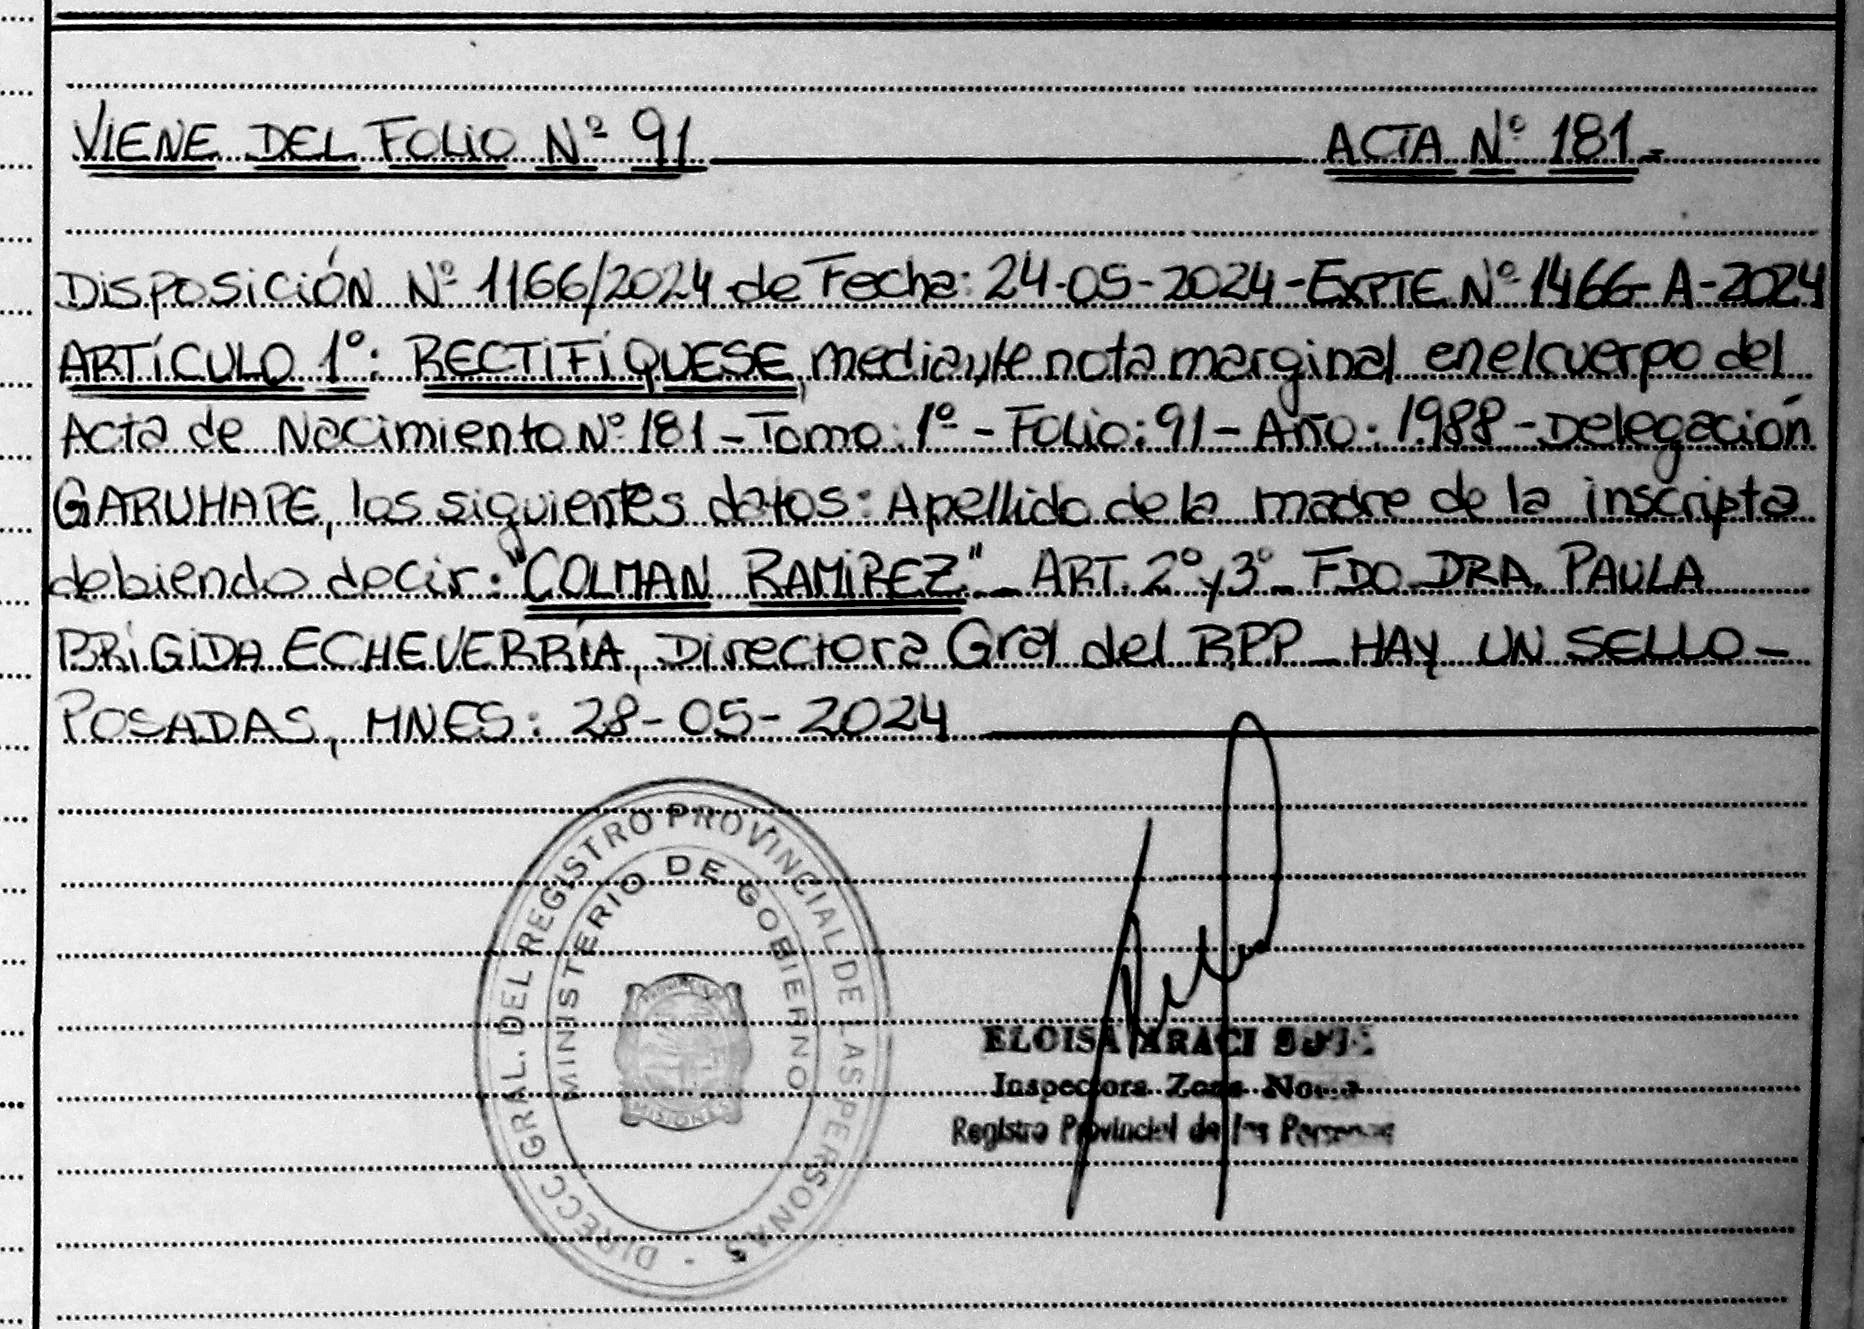 VIENE DEL FOLIO Nº 91 ACTA Nº 181-
DISPOSICIÓN Nº 1166/2024 de Fecha: 24-05-2024 - EXPTE Nº 1466-A-2024
ARTÍCULO 1º: RECTIFÍQUESE, mediante nota marginal en el cuerpo del
Acta de Nacimiento Nº 181 - Tomo: 1º - Folio: 91 - Año: 1988 - Delegación
GARUHAPE, los siguientes datos: Apellido de la madre de la inscripta
debiendo decir: "COLMAN RAMIREZ" - ART. 2º y 3º - FDO. DRA. PAULA
BRÍGIDA ECHEVERRÍA, Directora Gral del RPP - HAY UN SELLO -
POSADAS, MNES: 28-05-2024
DIRECC. GRAL. DEL REGISTRO PROVINCIAL DE LAS PERSONAS -
MINISTERIO DE GOBIERNO
PROVINCIA
MISIONES
ELOISA ARACI
Inspectora Zona
Registro Provincial de las Personas